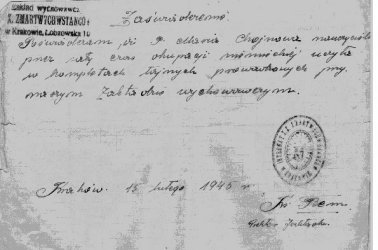 Zakład wychowawczy
X. ZMARTWYCHWSTAŃCÓW
w Krakowie, Łobzowska 10
Zaświadczenie
Poświadczam, że p. Maria Chojnowa nauczycielka
przez cały czas okupacji niemieckiej uczyła
w kompletach tajnych prowadzonych przy
naszym Zakładzie wychowawczym.
Kraków, 15 lutego 1946 r.